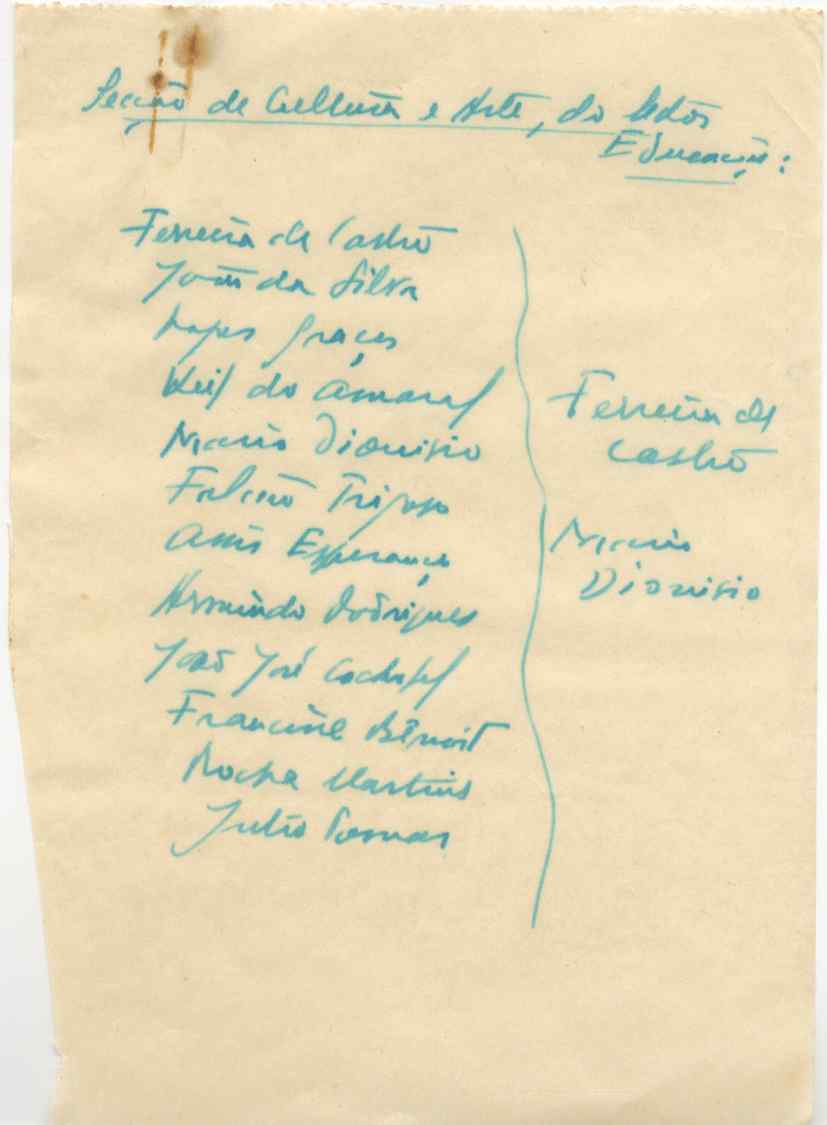 Secção de Cultura e Arte, do
Educação:
Ferreira de Castro
João da Silva
Lopes Graça
Keil do Amaral
Mario Dionisio
Falcão Trigoso
Assis Esperança
Armindo Rodrigues
João José Cochofel
Francine Benoit
Rocha Martins
Julio Pomar
Ferreira de
Castro
Mario
Dionisio